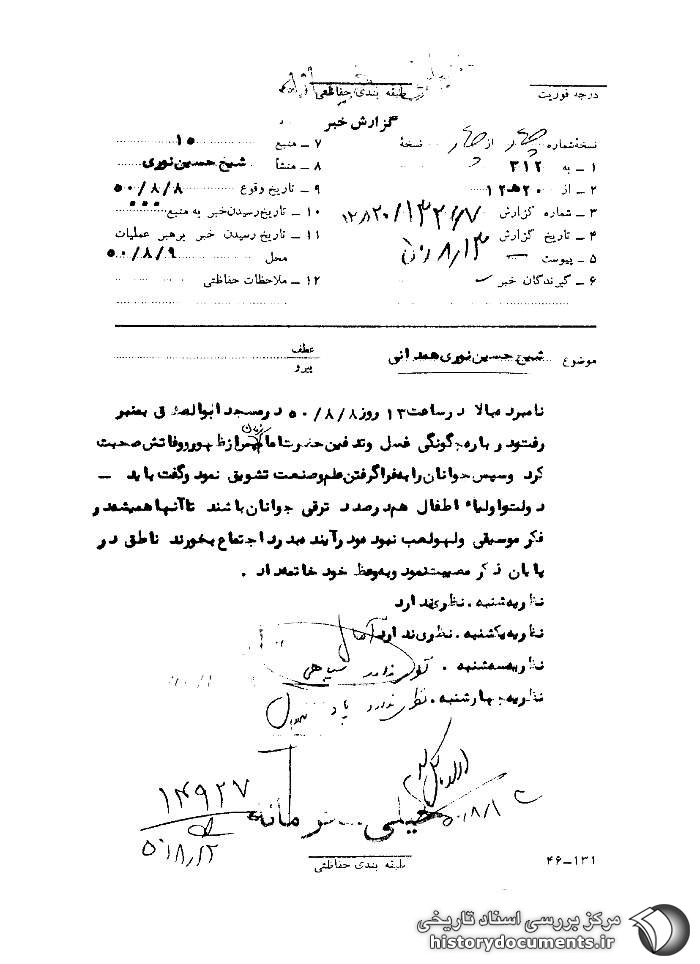 طبقه بندی حفاظتی
درجه فوریت
گزارش خبر
نسخهٔ شماره چهار از چهار نسخهٔ
۱ ـ به ۳۱۲
۲ ـ از ۲۰ هـ ۱۲
۳ ـ شماره گزارش
۴ ـ تاریخ گزارش
۵ ـ پیوست —
۶ ـ گیرندگان خبر
۷ ـ منبع ۱۵
۸ ـ منشأ شیخ حسین نوری
۹ ـ تاریخ وقوع ۵۰/۸/۸
۱۰ ـ تاریخ رسیدن خبر به منبع
۱۱ ـ تاریخ رسیدن خبر برهبر عملیات
محل ۵۰/۸/۹
۱۲ ـ ملاحظات حفاظتی
موضوع شیخ حسین نوری همدانی
عطف
پیرو
نامبرده بالا در ساعت ۱۳ روز ۵۰/۸/۸ در مسجد ابوالصدق بمنبر
رفت و درباره چگونگی غسل و تدفین حضرت امام زمان پس از ظهور و وفاتش صحبت
کرد و سپس جوانان را به فرا گرفتن علم و صنعت تشویق نمود و گفت باید ـ
دولت و اولیاء اطفال هم در صدد ترقی جوانان باشند تا آنها همیشه در
فکر موسیقی و لهو لعب نبوده و در آینده بدرد اجتماع بخورند ناطق در
پایان ذکر مصیبت نمود و بوعظ خود خاتمه داد .
نظریه شنبه . نظری ندارد
نظریه یکشنبه . نظری ندارد
نظریه سه‌شنبه .
نظریه چهارشنبه . نظری ندارد
۱۴۹۲۷
۵۰/۸/۱۲
خیلی محرمانه
طبقه بندی حفاظتی
۴۶-۱۳۱
مرکز بررسی اسناد تاریخی
historydocuments.ir